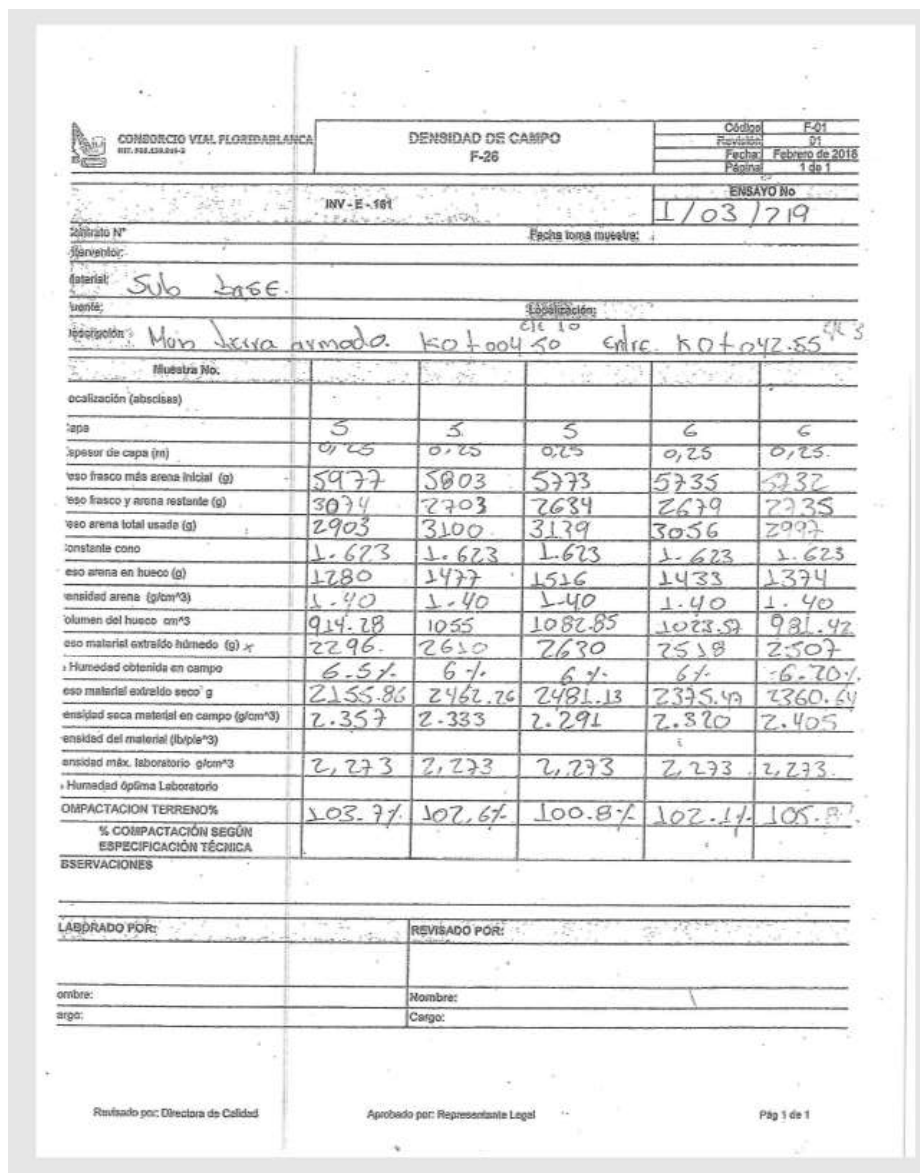 CONSORCIO VIAL FLORIDABLANCA
DENSIDAD DE CAMPO
F-26
Código F-01
Revisión 01
Fecha: Febrero de 2016
Página 1 de 1
INV - E - 161
ENSAYO No
1/03/219
Contrato N°
Fecha toma muestra:
nterventor:
Material: Sub base.
uente:
Localización:
escripción: Muro tierra armada. K0+004.50 Entre K0+042.55
Muestra No.
ocalización (abscisas)
apa 5 5 5 6 6
spesor de capa (m) 0,25 0.25 0,25 0,25 0,25.
eso frasco más arena inicial (g) 5977 5803 5773 5735 5732
eso frasco y arena restante (g) 3074 2703 2634 2679 2735
eso arena total usada (g) 2903 3100 3139 3056 2997
onstante cono 1.623 1.623 1.623 1.623 1.623
eso arena en hueco (g) 1280 1477 1516 1433 1374
ensidad arena (g/cm^3) 1.40 1.40 1.40 1.40 1.40
olumen del hueco cm^3 914.28 1055 1082.85 1023.57 981.42
eso material extraído húmedo (g) x 2296. 2610 2630 2518 2507
Humedad obtenida en campo 6.5% 6% 6% 6% 6.20%
eso material extraído seco g 2155.86 2462.26 2481.13 2375.47 2360.64
ensidad seca material en campo (g/cm^3) 2.357 2.333 2.291 2.320 2.405
ensidad del material (lb/pie^3)
ensidad máx. laboratorio g/cm^3 2,273 2,273 2,273 2,273 2,273.
Humedad óptima Laboratorio
OMPACTACION TERRENO% 103.7% 102,6% 100.8% 102.1% 105.8%
% COMPACTACIÓN SEGÚN
ESPECIFICACIÓN TÉCNICA
BSERVACIONES
LABORADO POR:
REVISADO POR:
ombre:
Nombre:
argo:
Cargo:
Revisado por: Directora de Calidad
Aprobado por: Representante Legal
Pág 1 de 1